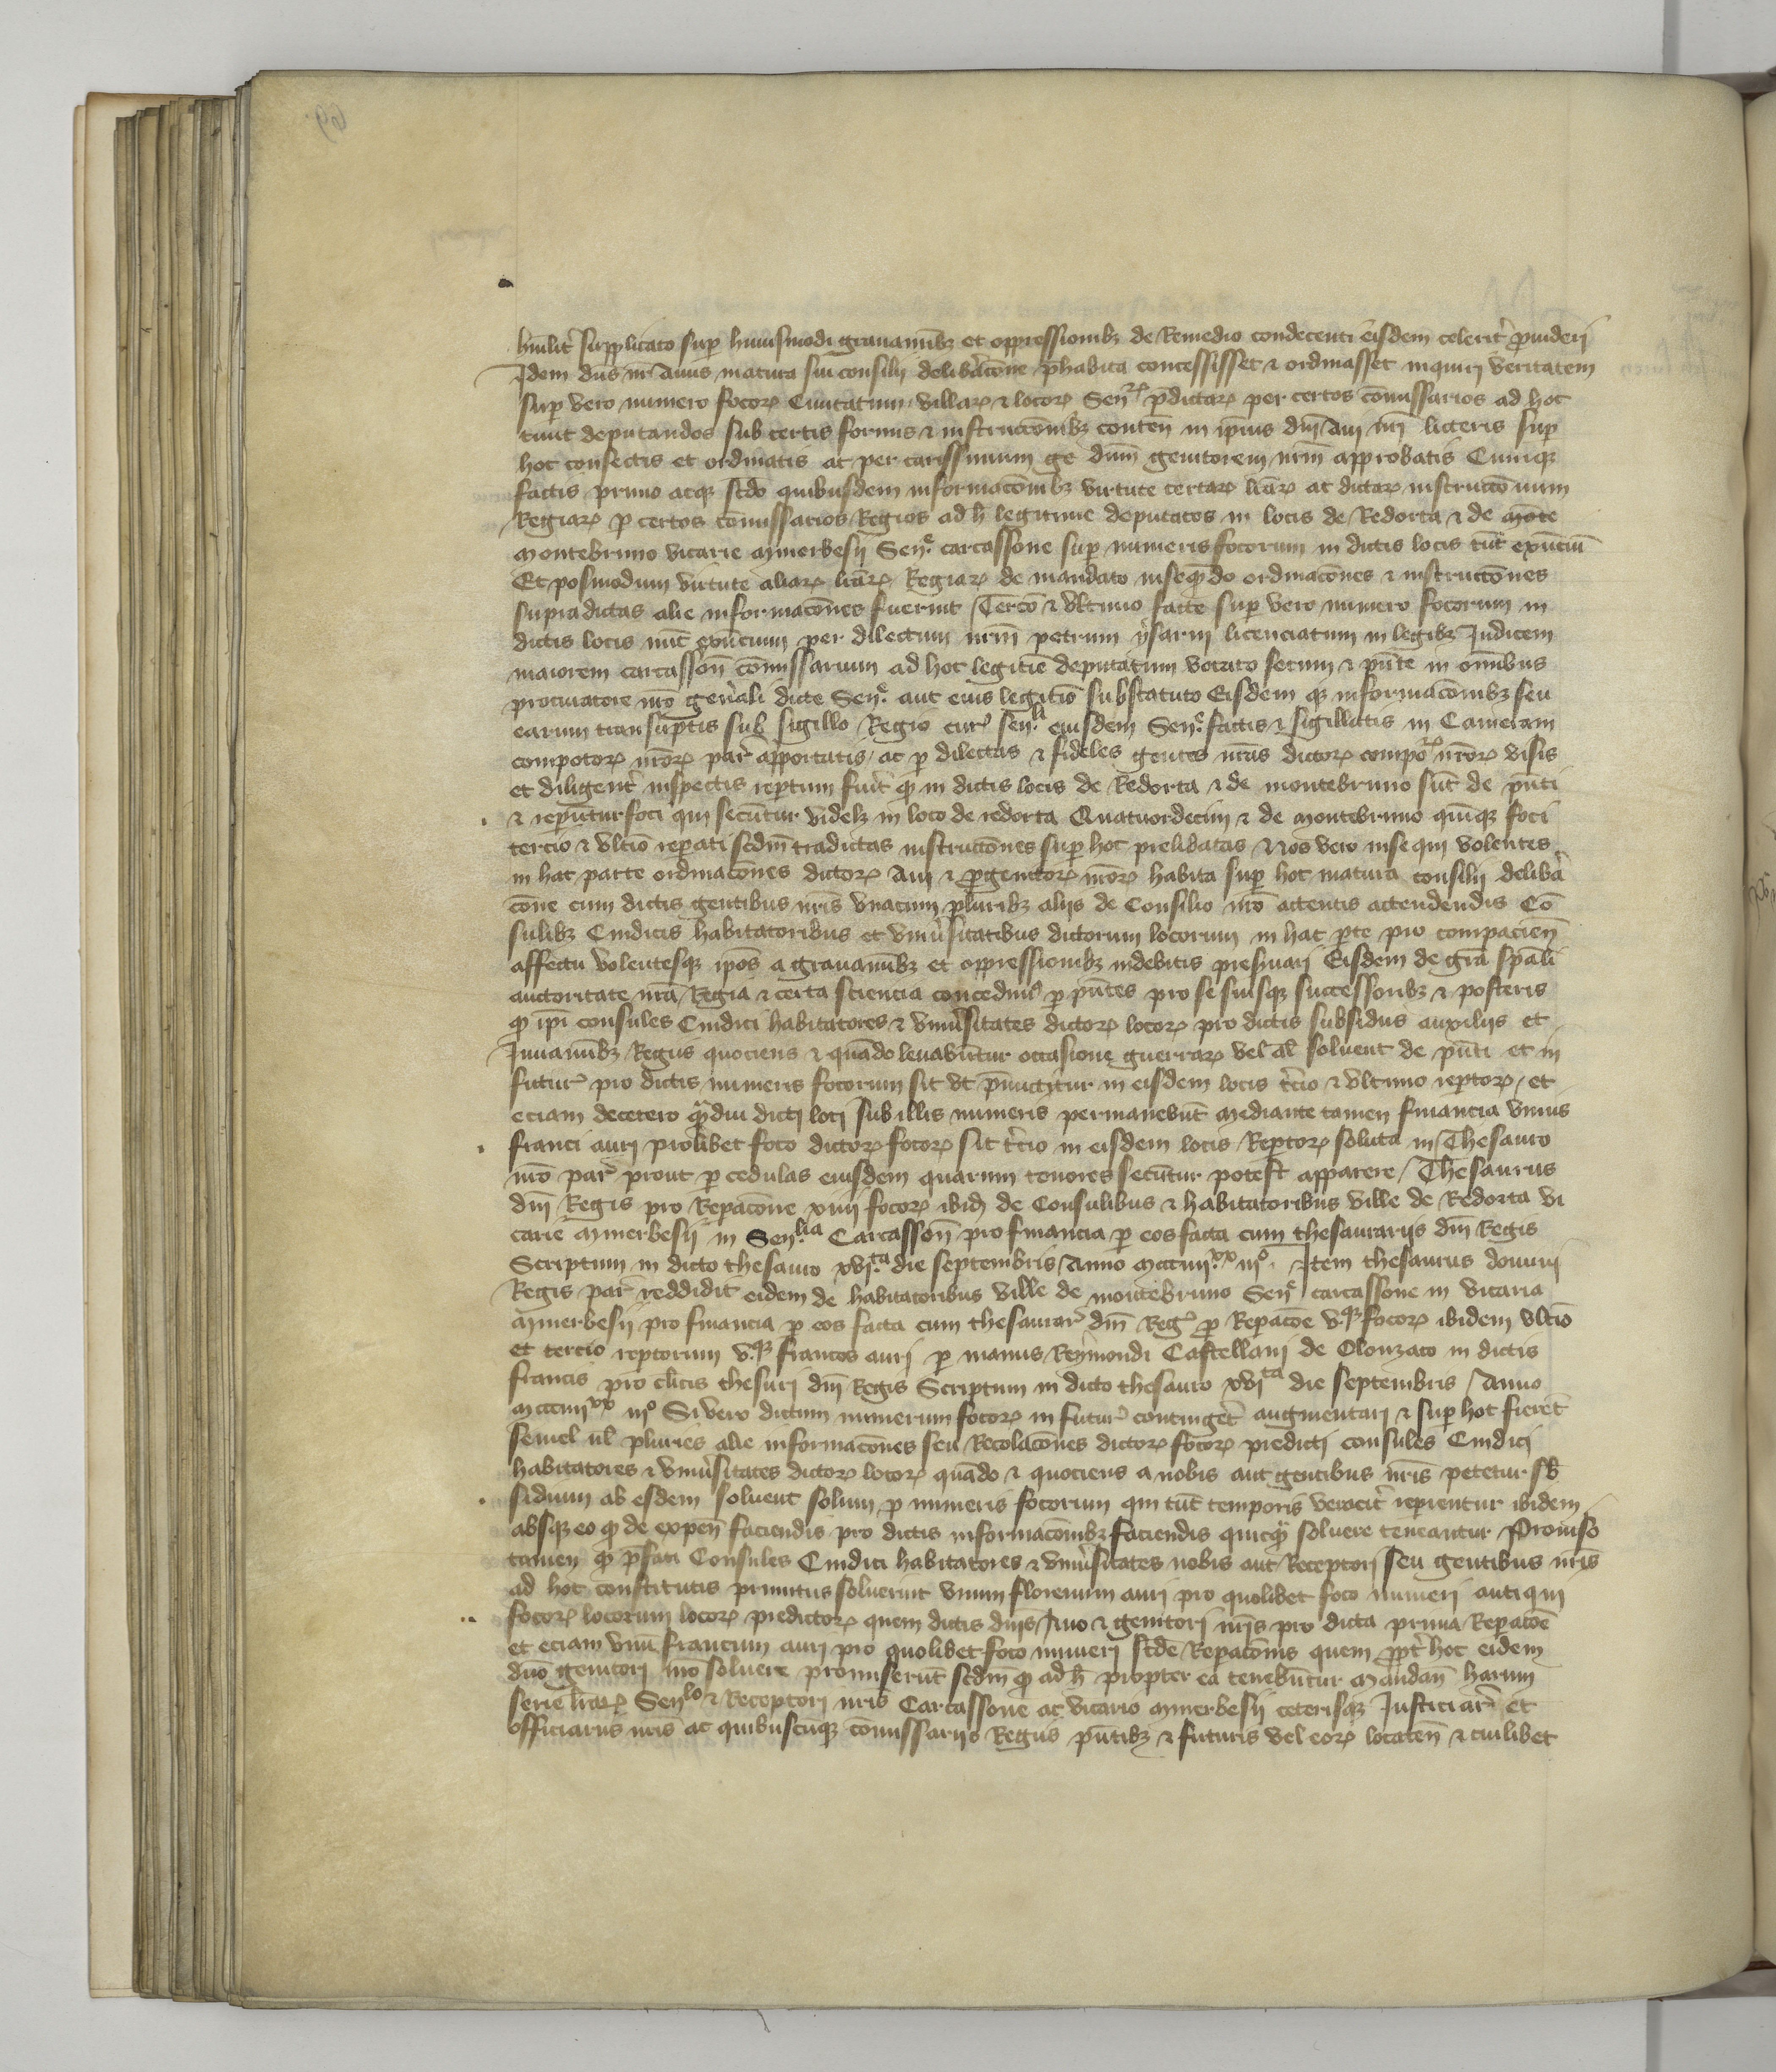 humilit̉ supplicato sup̱ huiusmodi grauamībꝫ et oppressionibꝫ de Remedio condecenti eisdem celerit̉ ꝓuideri
Idem dn̄s nr̄ Auus matura sui consilij delibẻacōne p̄habita concessisset ⁊ ordinasset inquiri veritatem
sup̱ vero numero focoꝝ Ciuitatum villaꝝ ⁊ locoꝝ Senꝝ p̄dictaꝝ per certos cōmissarios ad hoc
tunc deputandos sub certis formis ⁊ instruccōnibꝫ conten̄ in ip̄ius dn̄i Aui nr̄i litteris sup̱
hoc confectis et ordinatis ac per carissimum ge dn̄m genitorem nr̄m approbatis Cumqꝫ
factis primo atqꝫ scd̄o quibusdem informacōnibꝫ virtute certaꝝ lr̄aꝝ ac dictaꝝ instruccōnum
Regiaꝝ ꝑ certos cōmissarios Regios ad h̄ legitime deputatos in locis de Redorta ⁊ de mōte
montebruno vicarie minerbesij Sen̄ͤ carcassone sup̱ numeris focorum in dictis locis tūc exn̄ciū
Et posmodum virtute aliaꝝ lr̄aꝝ Regiaꝝ de mandato inseqn̄do ordinacōnes ⁊ instruccōnes
supradictas alie informacōnes fuerint Tercō ⁊ vltimo facte sup̱ vero numero focorum in
dictis locis nūc exn̄cium per dilectum nr̄m petrum ysarni licenciatum in legibꝫ Judicem
maiorem carcasson̄ cōmissarium ad hoc legitīe deputatum vocato secum ⁊ pn̄te in omībus
procuratore nr̄o gen̉ali dicte Sen̄ͤ aut eius legitīo substatuto Eisdem qꝫ informacōnibꝫ seu
earum transup̱tis sub sigillo Regio cur̉ sen̄ˡⁱ eiusdem Sen̄ͤ factis ⁊ sigillatis in Cameram
compotoꝝ nr̄oꝝ par̉ apportatis ac ꝑ dilectas ⁊ fideles gentes nr̄as dictoꝝ compoꝝ nr̄oꝝ visis
et diligent̉ inspectis rep̱tum fuit ꝙ in dictis locis de Redorta ⁊ de montebruno sūt de pn̄ti
⁊ rep̱iūtur foci qui secūtur videlꝫ in loco de redorta Quatuordecim ⁊ de montebruno quinqꝫ foci
tercio ⁊ vltīo rep̱ati scd̄m tradictas instruccōnes sup̱ hoc prelibatas Nos vero insequi volentes
in hac parte ordinacōnes dictoꝝ Aui ⁊ ꝓgenitoꝝ nr̄oꝝ habita sup̱ hoc matura consilij delibẻa
cōne cum dictis gentibus nr̄is vnacum pluribꝫ alijs de Consilio nr̄o attentis attendendis Cō
sulibꝫ Cindicis habitatoribus et vniủsitatibus dictorum locorum in hac ꝑte pio compacien̄
affectu volentesqꝫ ip̄os a grauamībꝫ et oppressionibꝫ indebitis preseruari Eisdem de gr̄a sp̄ali
auctoritate nr̄a Regia ⁊ certa sciencia concedimꝰ ꝑ pn̄tes pro se suisqꝫ successoribꝫ ⁊ posteris
ꝙ ip̄i consules Cindici habitatores ⁊ vniủsitates dictoꝝ locoꝝ pro dictis subsidiis auxilijs et
Juuamībꝫ Regiis quociens ⁊ quādo leuabūtur occasione guerraꝝ vel al̄ soluent de pn̄ti et in
futur̉ pro dictis numeris focorum sic vt p̄mictitur in eisdem locis t̉cio ⁊ vltimo rep̱toꝝ et
eciam decetero qᷓdiu dicti loci sub illis numeris permanebūt mediante tamen financia vnius
franci auri prolibet foco dictoꝝ focoꝝ sic t̉cio in eisdem locis Rep̱toꝝ soluta in Thesauro
nr̄o par̉ prout ꝑ cedulas eiusdem quarum tenores secūtur potest apparere Thesaurus
dn̄i Regis pro Rep̱acōne xiiii focoꝝ ibid̄ de Consulibus ⁊ habitatoribus ville de Redorta vi
carie minerbesij in Sen̄ˡⁱᵃ Carcasson̄ pro financia ꝑ eos facta cum thesaurarijs dn̄i Regis
Scriptum in dicto thesauro xvi.ᵗᵃ die septembris Anno mccciiii.ˣˣ iiiº. Item thesaurus domini
Regis par̉ reddidit eidem de habitatoribus ville de montebruno Sen̄ͤ carcassone in vicaria
minerbesij pro financia ꝑ eos facta cum thesaurar̉ dn̄i Reg̉ ꝓ Rep̱acōe v.qꝫ focoꝝ ibidem vltīo
et tercio rep̱torum v.qꝫ francos auri ꝑ manus Reymondi Castellani de Olonzaco in dictis
francis pro cl̄icis thesuri dn̄i Regis Scriptum in dicto thesauro xviᵗᵃ die septembris Anno
mccciiiiˣˣ iiiº Si vero dictum numerum focoꝝ in futur̉ contingēt augmentari ⁊ sup̱ hoc fierēt
semel ul̄ pluries alie informacōnes seu Recolacōnes dictoꝝ focoꝝ predicti consules Cindici
habitatores ⁊ vniủsitates dictoꝝ locoꝝ quādo ⁊ quociens a nobis aut gentibus nr̄is petetur sb̄
sidium ab esdem soluent solum ꝓ numeris focorum qui tūc temporis veracit̉ rep̱ientur ibidem
absqꝫ eo ꝙ de expen̄ faciendis pro dictis informacōnibꝫ faciendis quicqᷓ soluere teneantur Prouiso
tamen ꝙ p̄fati Consules Cindici habitatores ⁊ vniủsitates nobis aut Receptori seu gentibus nr̄is
ad hoc constitutis primitus soluerint vnum florenum auri pro quolibet foco numeri antiqui
focoꝝ locorum locoꝝ predictoꝝ quem dictis dn̄is Auo ⁊ genitori nr̄is pro dicta prima Rep̱acōe
et eciam vnū francum auri pro quolibet foco numeri scd̄e Rep̱acōnis quem ꝓpt̉ hoc eidem
dn̄o genitori nr̄o soluere promiserūt scd̄m ꝙ ad h̄ propter ea tenebūtur Mandan̄ harum
serie lr̄aꝝ Sen̄ˡˡᵒ ⁊ Receptori nr̄is Carcassone ac vicario minerbesij ceterisqꝫ Justiciar̉ et
officiariis nr̄is ac quibuscūqꝫ cōmissarijs Regiis pn̄tibꝫ ⁊ futuris vel eoꝝ locaten̄ ⁊ cuilibet